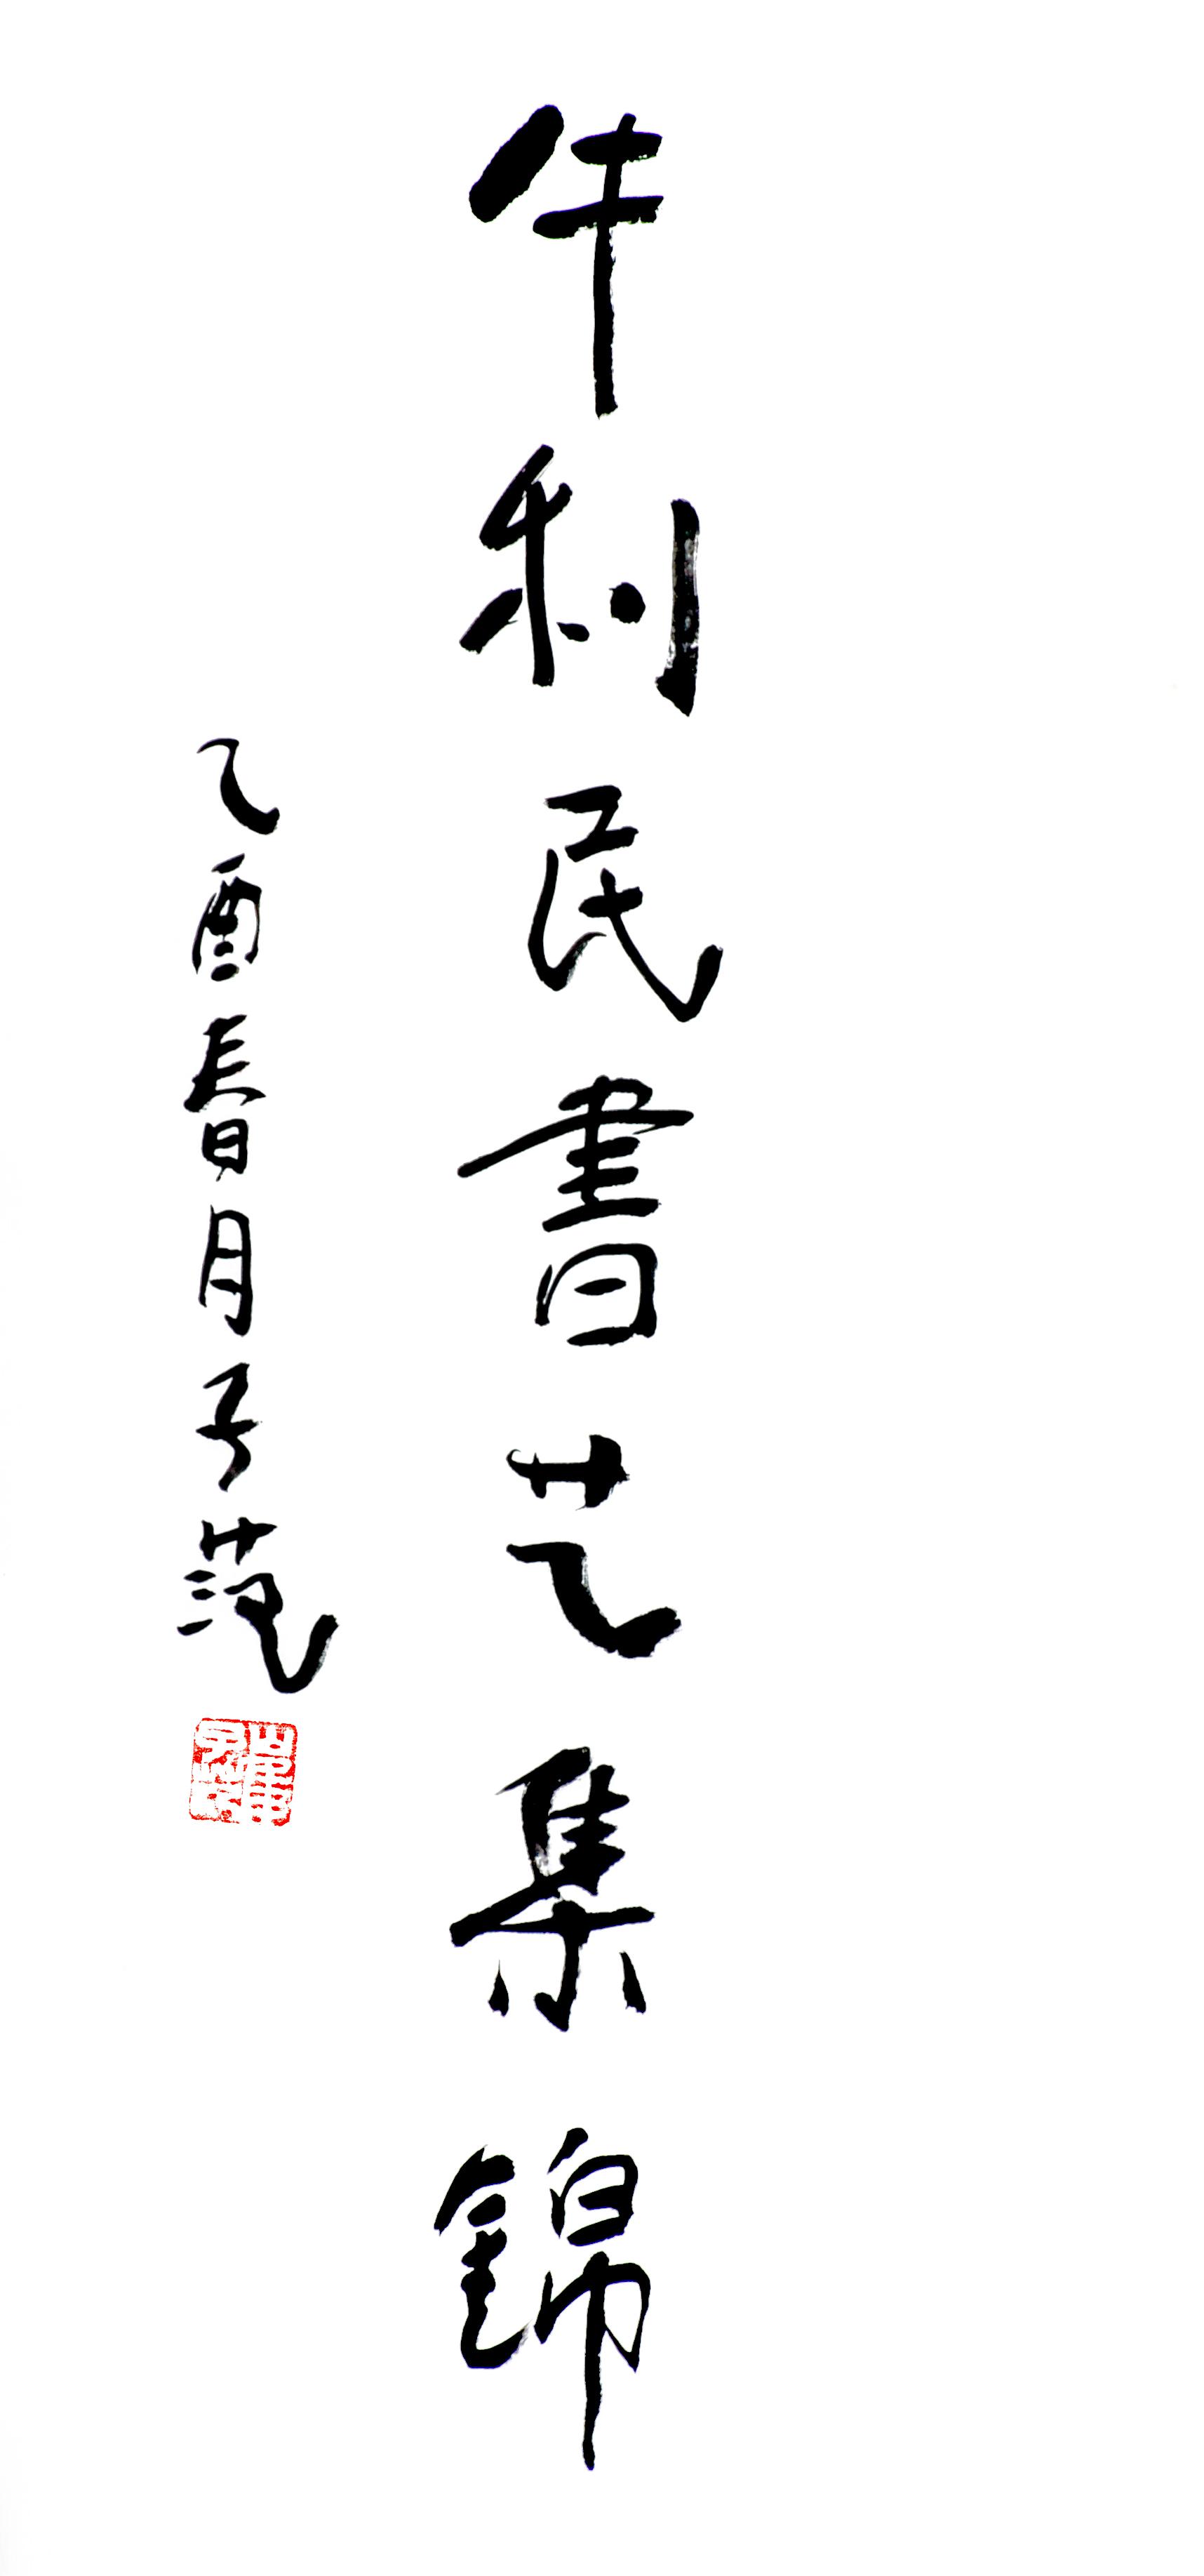 牛利民書艺集錦
乙酉春月子范